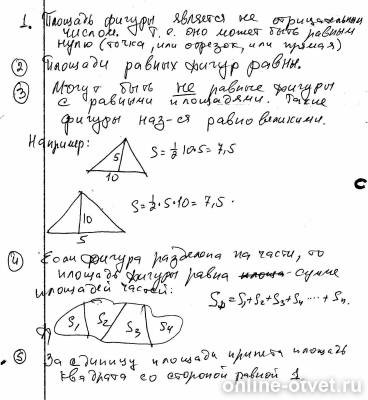 1. Площадь фигуры является не отрицательным
числом. Т.о. оно может быть равным
нулю (точка, или отрезок, или прямая)
2 Площади равных фигур равны.
3 Могут быть не равные фигуры
с равными площадями. Такие
фигуры наз-ся равновеликими.
Например:
5
10
S=½·10·5=7,5
10
5
S=½·5·10=7,5
с
4 Если фигура разделена на части, то
площадь фигуры равна сумме
площадей частей:
S1 S2 S3 S4
Sф=S1+S2+S3+S4....+Sn.
5 За единицу площади принята площадь
квадрата со стороной равной 1
online-otvet.ru